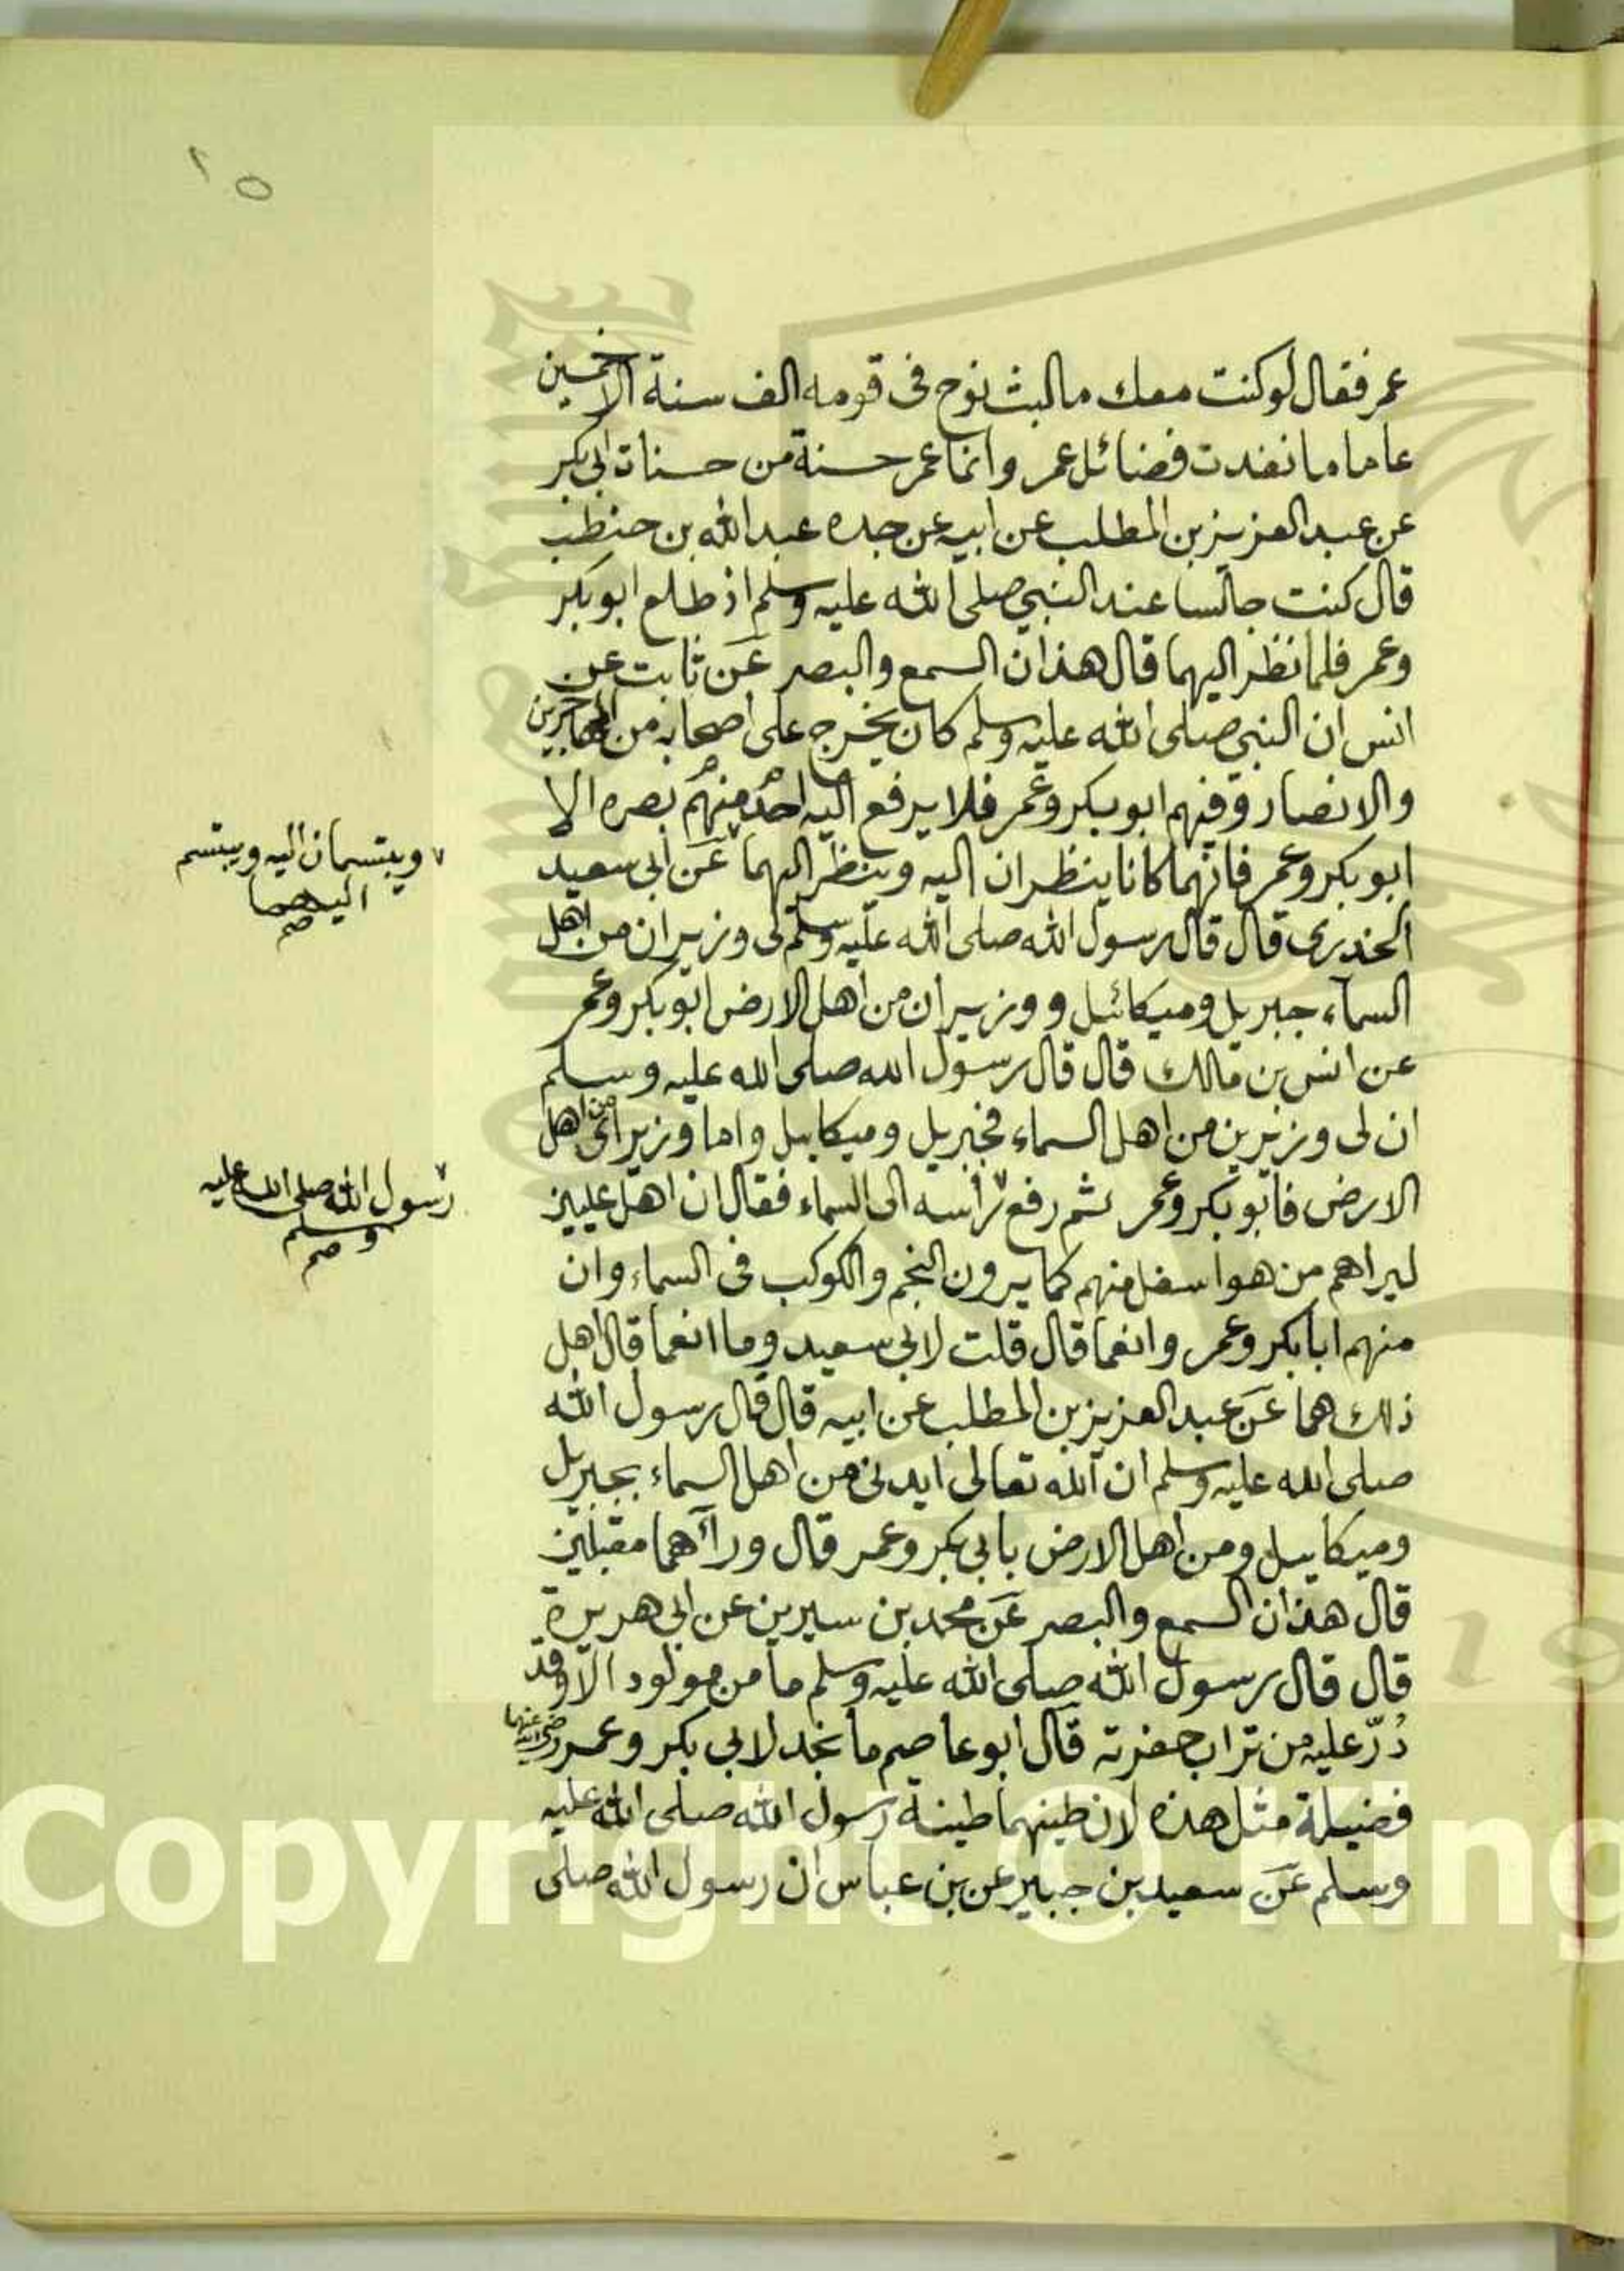 ٢٥
عمر فقال لو كنت معك ما لبث نوح فى قومه الف سنة الا خمسين
عاما ما نفدت فضائل عمر وانما عمر حسنة من حسنات ابى بكر
عن عبد العزيز بن المطلب عن ابيه عن جده عبد الله بن حنطب
قال كنت جالسا عند النبي صلى الله عليه وسلم اذ طلع ابو بكر
وعمر فلما نظر اليهما قال هذان السمع والبصر عن ثابت عن
انس ان النبي صلى الله عليه وسلم كان يخرج على اصحابه من المهاجرين
والانصار وفيهم ابو بكر وعمر فلا يرفع اليه احد منهم بصره الا
ابو بكر وعمر فانهما كانا ينظران اليه وينظر اليهما عن ابى سعيد
ويبتسمان اليه ويبتسم
اليهما
صم
الخدرى قال قال رسول الله صلى الله عليه وسلم لى وزيران من اهل
السماء جبريل وميكائيل و وزيران من اهل الارض ابو بكر وعمر
عن انس بن مالك قال قال رسول الله صلى الله عليه وسلم
ان لى وزيرين من اهل السماء فجبريل وميكاييل واما وزيراى من اهل
الارض فابو بكر وعمر ثم رفع راسه الى السماء فقال ان اهل عليين
رسول الله صلى الله عليه
وسلم
صم
ليراهم من هو اسفل منهم كما يرون النجم والكوكب فى السماء وان
منهم ابا بكر وعمر وانعما قال قلت لابى سعيد وما انعما قال اهل
ذلك هما عن عبد العزيز بن المطلب عن ابيه قال قال رسول الله
صلى الله عليه وسلم ان الله تعالى ايدنى من اهل السماء بجبريل
وميكاييل ومن اهل الارض بابى بكر وعمر قال ورآهما مقبلين
قال هذان السمع والبصر عن محمد بن سيرين عن ابى هريرة
قال قال رسول الله صلى الله عليه وسلم ما من مولود الا وقد
ذرّ عليه من تراب حفرته قال ابو عاصم ما نجد لابى بكر وعمر رضى الله عنهما
فضيلة مثل هذه لان طينهما طينة رسول الله صلى الله عليه
وسلم عن سعيد بن جبير عن بن عباس ان رسول الله صلى
Copyright © King